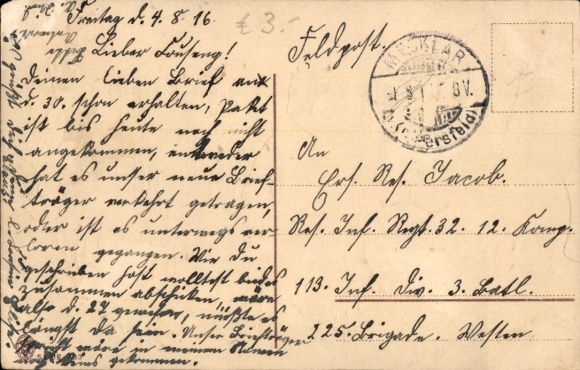 Freitag d. 4. 8. 16.
Lieber Couseng!
Deinen lieben Brief am
d. 30. schon erhalten, Paket
ist bis heute noch nicht
angekommen, entweder
hat es unser neue Brief-
träger verkehrt getragen,
oder ist es unterwegs ver
loren gegangen. Wie du
geschrieben hast wolltest beides
zusammen abschicken, wäre
also d. 27 gewesen, müßte es
längst da sein. Unser Briefträger
wäre in meinem Namen
gekommen.
€ 3.-
Feldpost.
MECKLAR
(Hersfeld)
An
Ers. Res. Jacob.
Res. Inf. Regt. 32. 12. Komp.
113. Inf. Div. 3. Batl.
225. Brigade. Westen